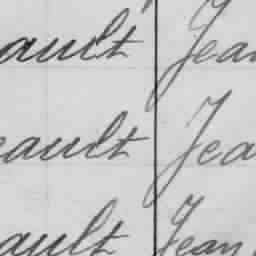 ault Jean
eault Jea
ault Jean